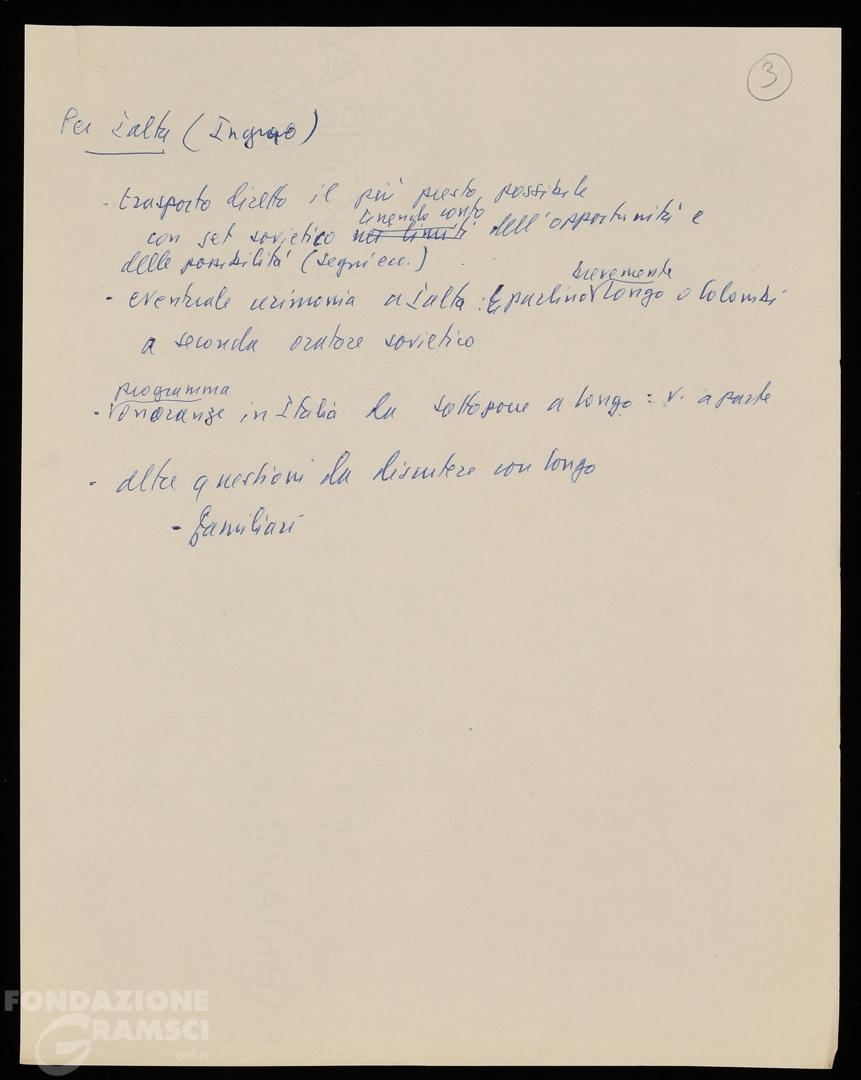 3
Per Ialta (Ingrao)
- trasporto diretto il più presto possibile
tenendo conto
con jet sovietico nei limiti dell'opportunità e
delle possibilità (Segni ecc.)
brevemente
- eventuale cerimonia a Ialta: parlino Longo o Colombi
a seconda oratore sovietico
programma
- onoranze in Italia da sottoporre a Longo: v. a parte
- altre questioni da discutere con Longo
- familiari
FONDAZIONE
GRAMSCI
onlus